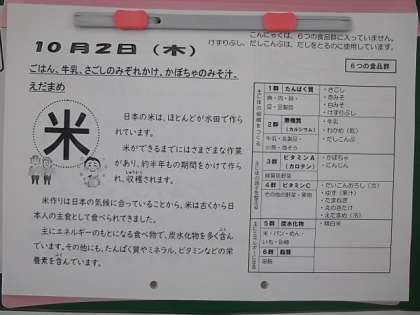 こんにゃくは、6つの食品群に入っていません。
けずりぶし、だしこんぶは、だしをとるのに使用しています。
10月2日（木）
6つの食品群
ごはん、牛乳、さごしのみぞれかけ、かぼちゃのみそ汁、
えだまめ
米
日本の米は、ほとんどが水田で作ら
れています。
米ができるまでにはさまざまな作業
があり、約半年もの期間をかけて作ら
れ、収穫されます。
米作りは日本の気候に合っていることから、米は古くから日
本人の主食として食べられてきました。
主にエネルギーのもとになる食べ物で、炭水化物を多く含ん
でいます。その他にも、たんぱく質やミネラル、ビタミンなどの栄
養素を含んでいます。
1群 たんぱく質
魚・肉・卵・
豆・豆製品
・さごし
・赤みそ
・白みそ
・けずりぶし
2群 無機質
（カルシウム）
牛乳・乳製品・
小魚・海そう
・牛乳
・わかめ（乾）
・だしこんぶ
3群 ビタミンA
（カロテン）
緑黄色野菜
・かぼちゃ
・にんじん
4群 ビタミンC
その他の野菜・果物
・だいこんおろし（冷）
・ゆず（果汁）
・たまねぎ
・えのきたけ
・えだまめ（冷）
5群 炭水化物
米・パン・めん・
いも・砂糖
・精白米
6群 脂質
油脂